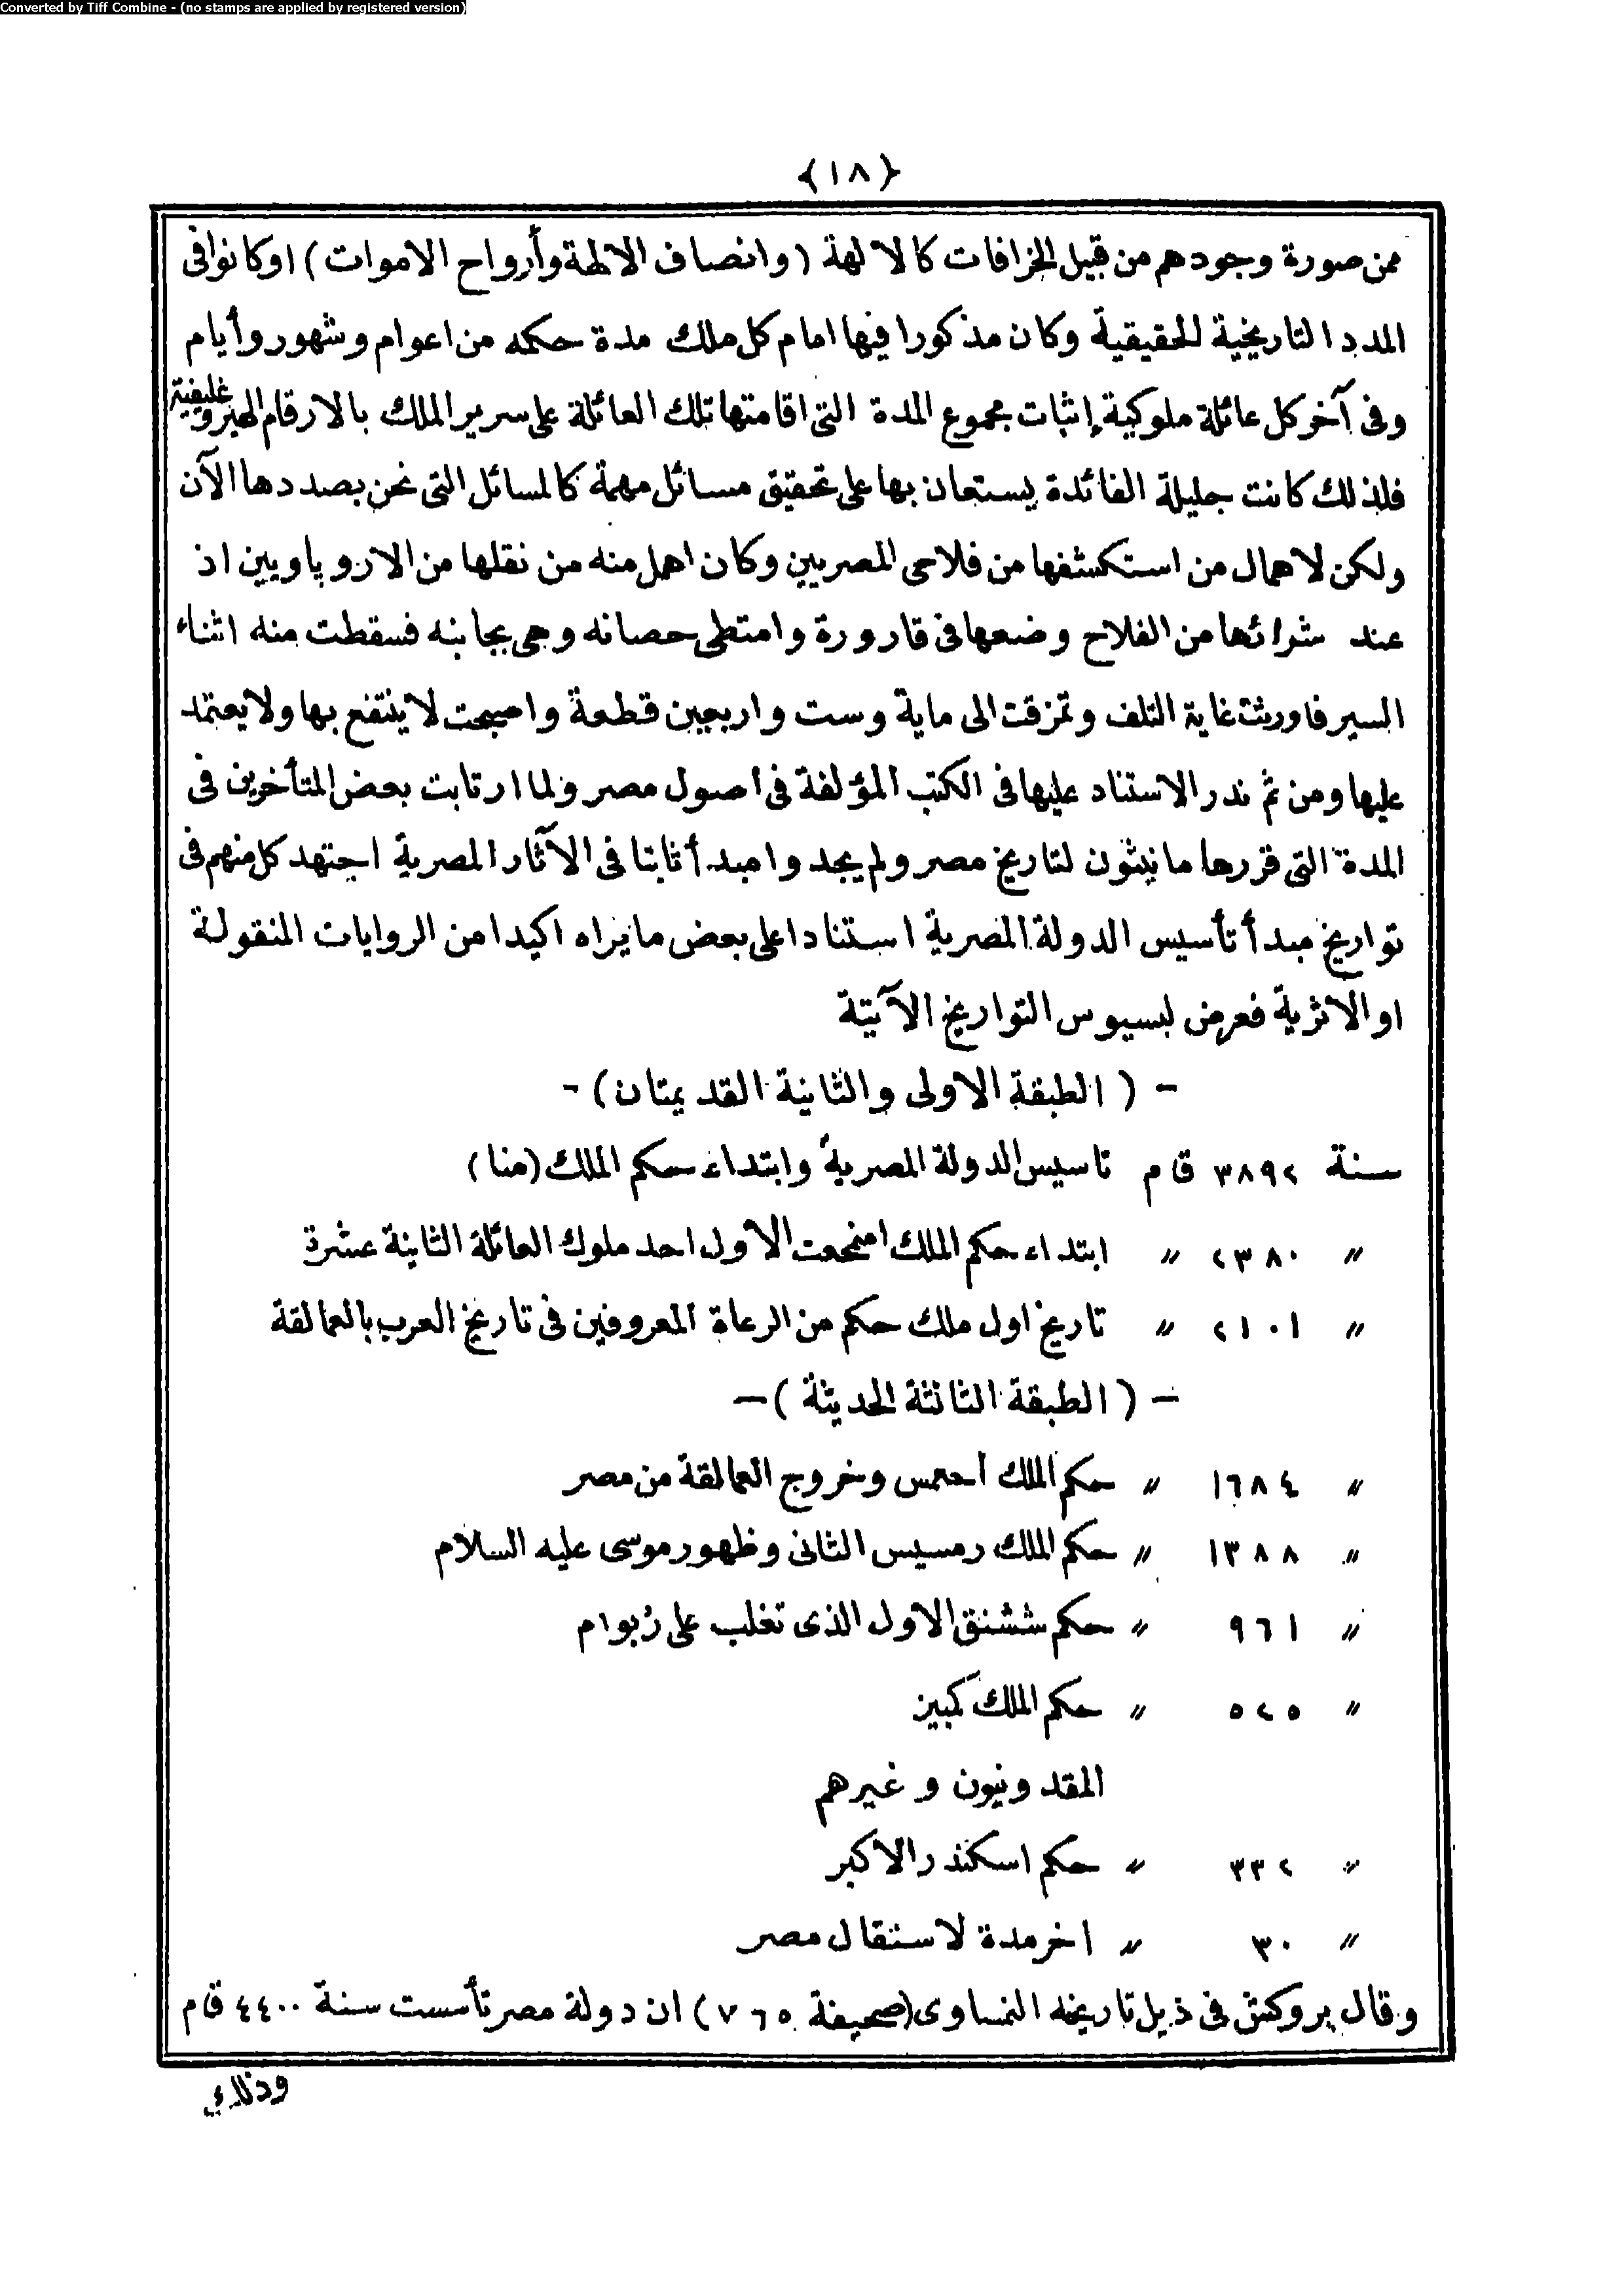 Converted by Tiff Combine - (no stamps are applied by registered version)
{١٨}
ممن صورة وجودهم من قبيل الخرافات كالالهة (وانصاف الالهة وأرواح الاموات) اوكانوا فى
المدد التاريخية الحقيقية وكان مذكورا فيها امام كل ملك مدة حكمه من اعوام وشهور وأيام
وفى آخر كل عائلة ملوكية إثبات مجموع المدة التى اقامتها تلك العائلة على سرير الملك بالارقام الهيروغليفية
فلذلك كانت جليلة الفائدة يستعان بها على تحقيق مسائل مهمة كالمسائل التى نحن بصددها الآن
ولكن لاهمال من استكشفها من فلاحى المصريين وكان اهمل منه من نقلها من الاروپاويين اذ
عند شرائها من الفلاح وضعها فى قارورة وامتطى حصانه وهى بجانبه فسقطت منه اثناء
السير فاورثت غاية التلف وتمزقت الى ماية وست واربعين قطعة واصبحت لاينتفع بها ولايعتمد
عليها ومن ثم ندر الاستناد عليها فى الكتب المؤلفة فى اصول مصر ولما ارتابت بعض المتأخرين فى
المدة التى قررها مانيثون لتاريخ مصر ولم يجدوا مبدأ ثابتا فى الآثار المصرية اجتهد كل منهم فى
تواريخ مبدأ تأسيس الدولة المصرية استنادا على بعض مايراه اكيدا من الروايات المنقولة
او الاثرية فعرض لبسيوس التواريخ الآتية
- (الطبقة الاولى والثانية القديمتان) -
سنة ٣٨٩٢ ق م تاسيس الدولة المصرية وابتداء حكم الملك (منا)
〃 ٢٣٨٠ 〃 ابتداء حكم الملك امنحعت الاول احد ملوك العائلة الثانية عشرة
〃 ٢١٠١ 〃 تاريخ اول ملك حكم من الرعاة المعروفين فى تاريخ العرب بالعمالقة
- (الطبقة الثالثة الحديثة) -
〃 ١٦٨٤ 〃 حكم الملك احمس وخروج العمالقة من مصر
〃 ١٣٨٨ 〃 حكم الملك رمسيس الثانى وظهور موسى عليه السلام
〃 ٩٦١ 〃 حكم ششنق الاول الذى تغلب على ربوام
〃 ٥٢٥ 〃 حكم الملك كمبيز
المقدونيون وغيرهم
〃 ٣٣٢ 〃 حكم اسكندر الاكبر
〃 ٣٠ 〃 اخر مدة لاستقال مصر
وقال بروكش فى ذيل تاريخه النمساوى (صحيفة ٧٦٥) ان دولة مصر تأسست سنة ٤٤٠٠ ق م